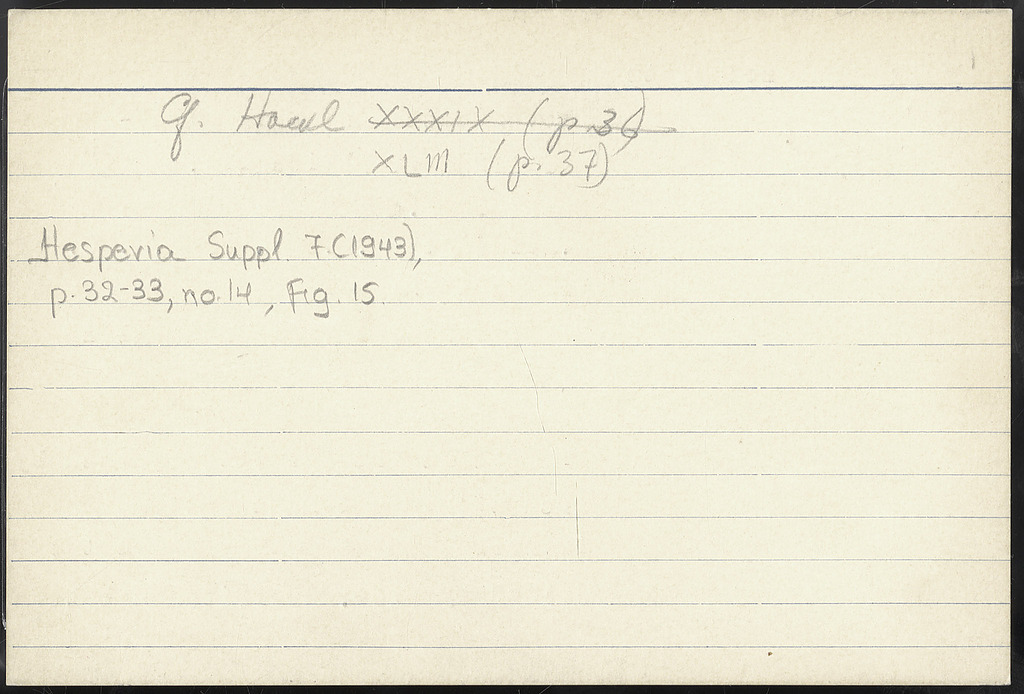 Cf. Howl XXXIX (p. 36)
XLIII (p. 37)
Hesperia Suppl. 7 (1943),
p. 32-33, no. 14, Fig. 15.